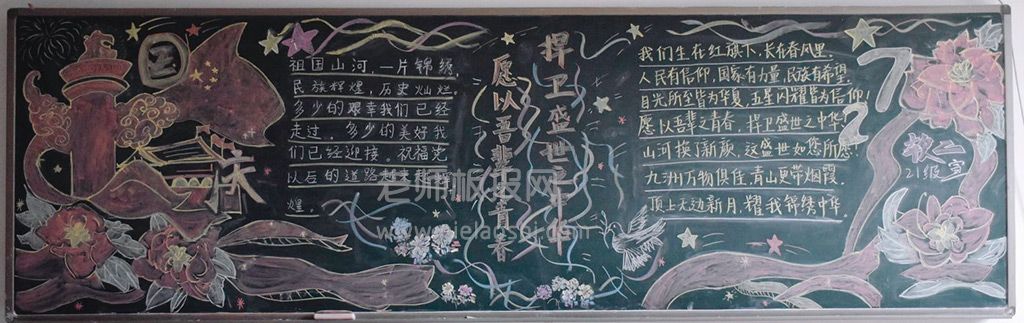 国
庆
祖国山河，一片锦绣，
民族辉煌，历史灿烂。
多少的艰辛我们已经
走过，多少的美好我
们已经迎接。祝福党
以后的道路越来越辉
煌。
愿以吾辈之青春
捍卫盛世之中华
我们生在红旗下，长在春风里，
人民有信仰，国家有力量，民族有希望。
目光所至皆为华夏，五星闪耀皆为信仰！
愿以吾辈之青春，捍卫盛世之中华！
山河换了新颜，这盛世如您所愿！
九洲万物俱佳，青山更带烟霞，
顶上天边新月，耀我锦绣中华。
72
21级
老师板报网